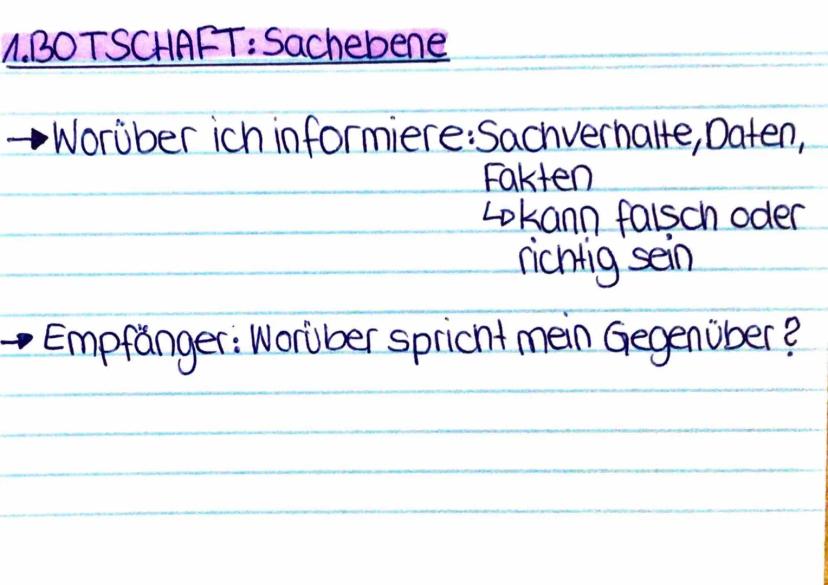 1.BOTSCHAFT: Sachebene
→ Worüber ich informiere: Sachverhalte, Daten,
Fakten
↳ kann falsch oder
richtig sein
→ Empfänger: Worüber spricht mein Gegenüber?